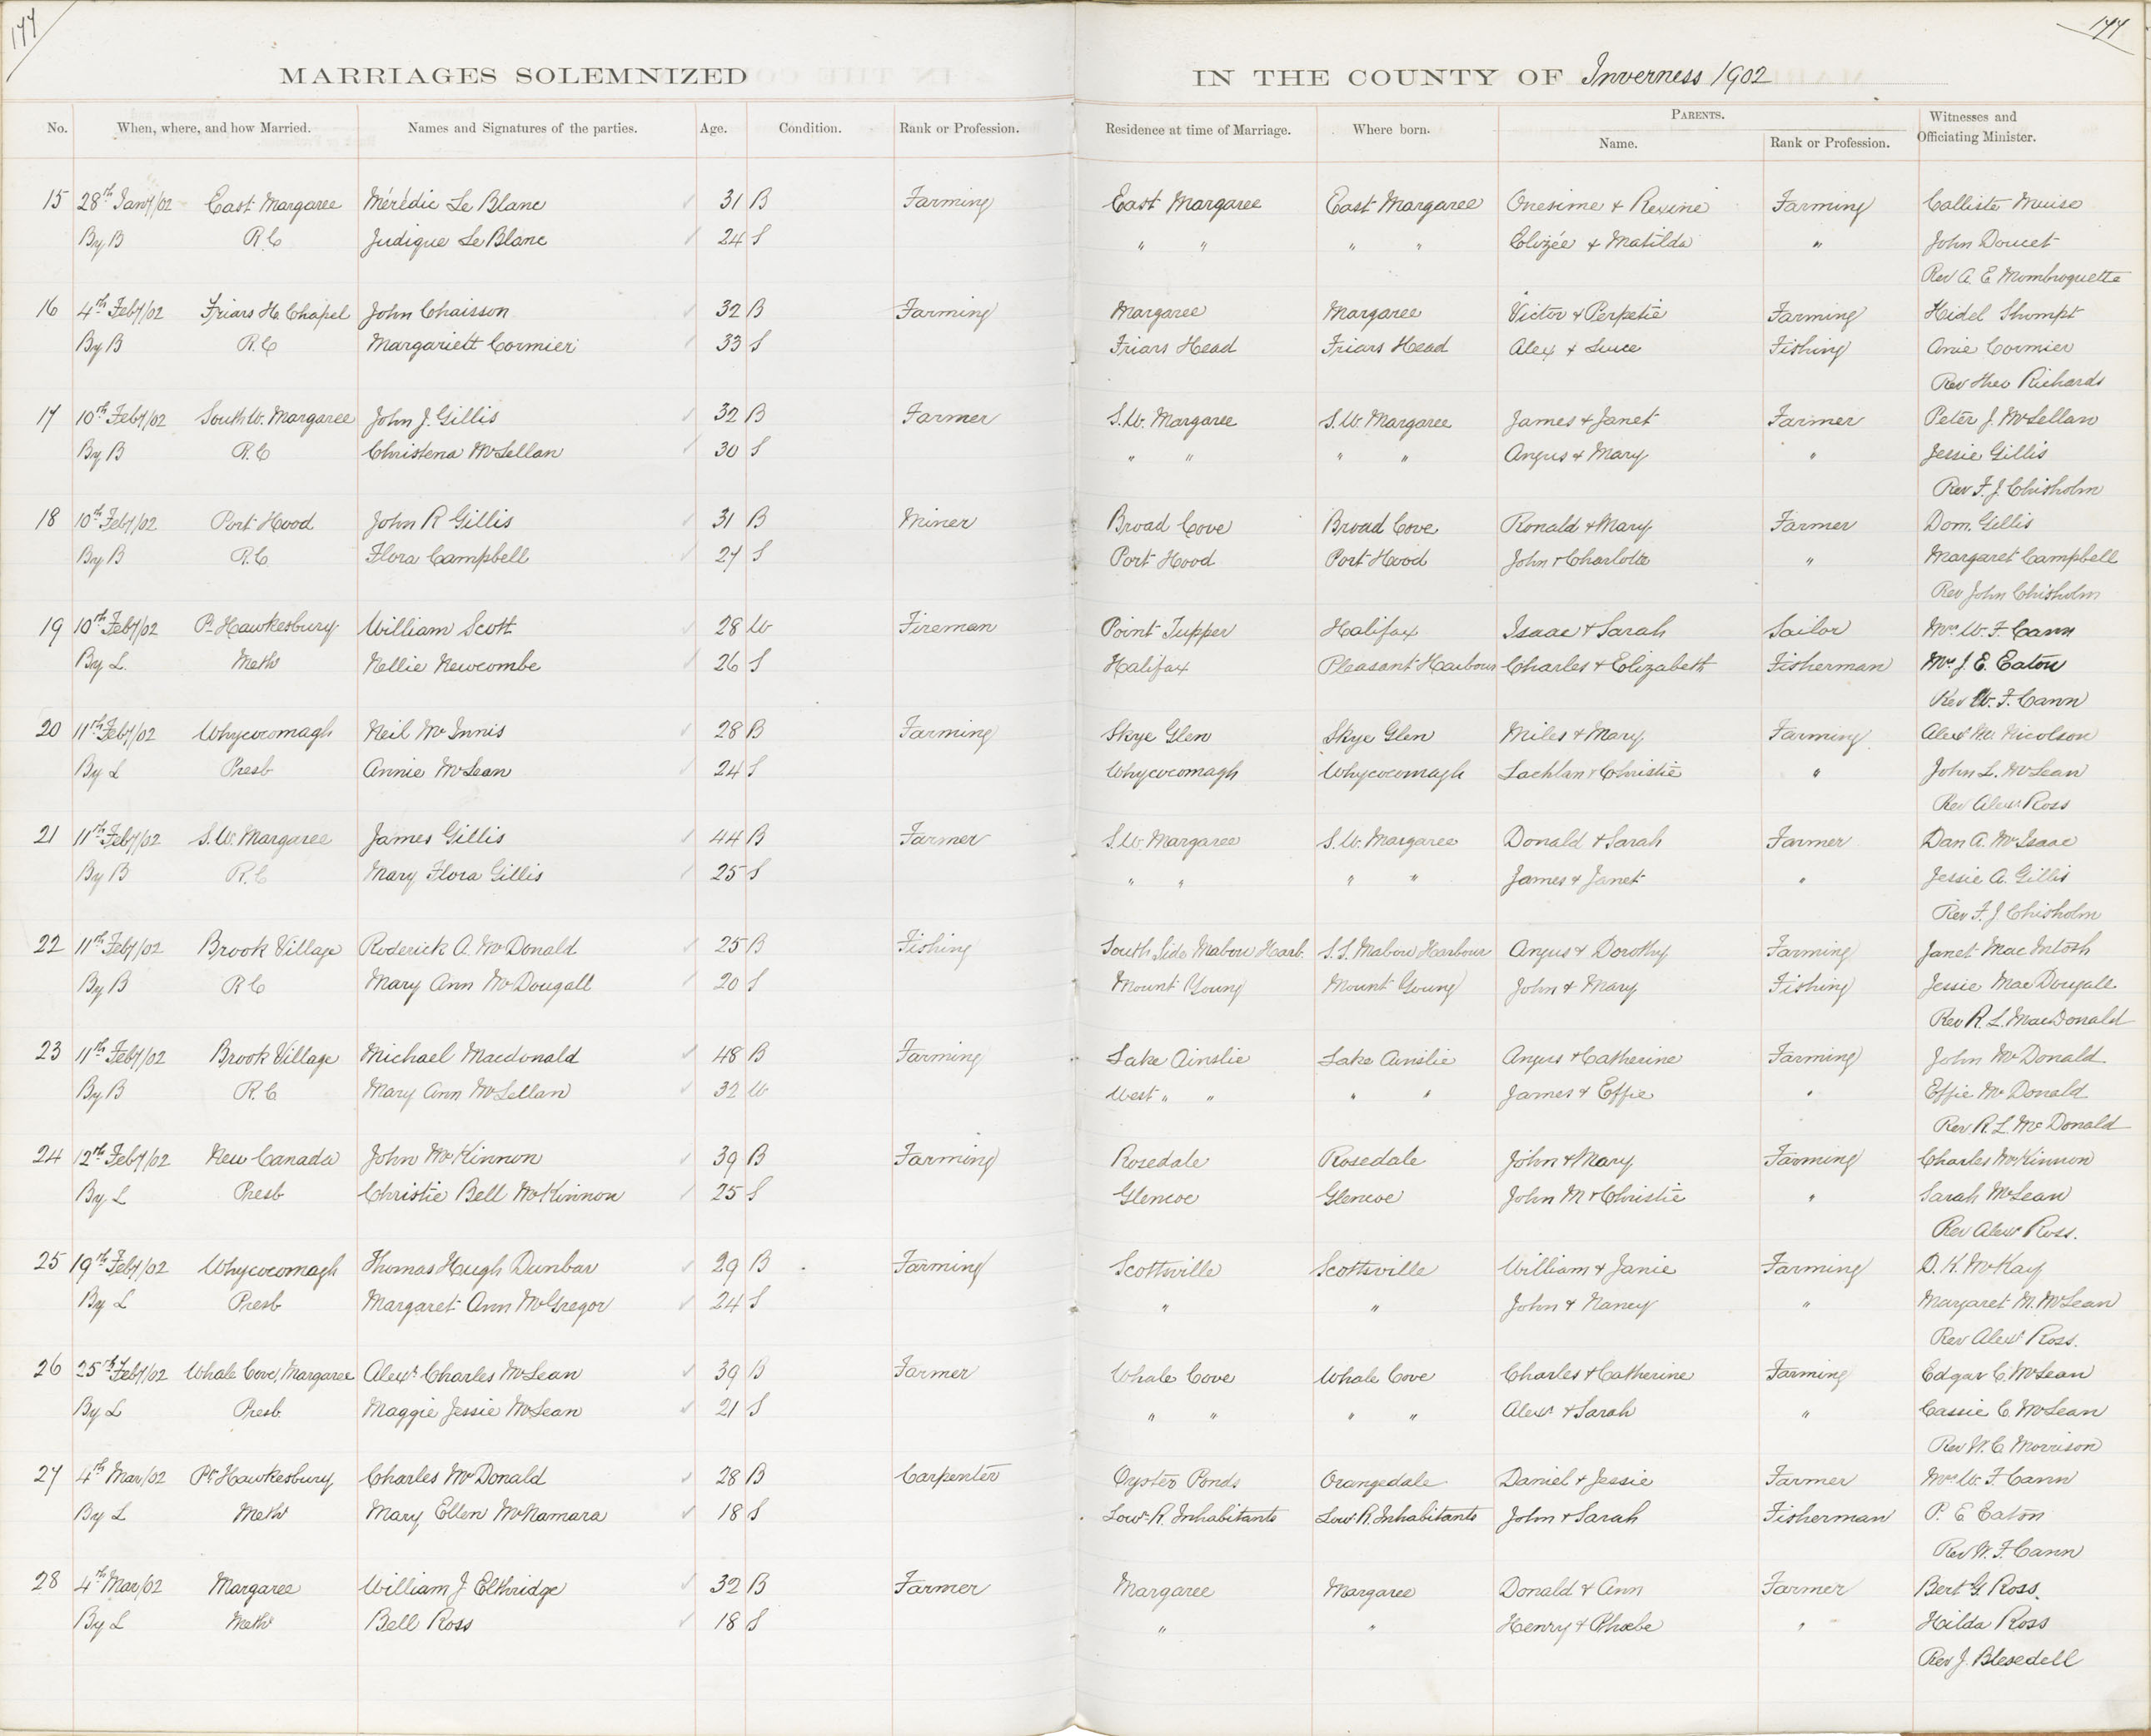 177 177
MARRIAGES SOLEMNIZED IN THE COUNTY OF Inverness 1902
No. When, where, and how Married. Names and Signatures of the parties. Age. Condition. Rank or Profession. Residence at time of Marriage. Where born. PARENTS. Name. Rank or Profession. Witnesses and Officiating Minister.
15 28th Jany/02 East Margaree Mérédic Le Blanc 31 B Farming East Margaree East Margaree Onesime & Rexine Farming Calliste Muise
By B R.C Judique Le Blanc 24 S " " " " Elizée & Matilda " John Doucet
Rev A. E Mombroquette
16 4th Feby/02 Friars H. Chapel John Chaisson 32 B Farming Margaree Margaree Victor & Perpetie Farming Fidel Shompt
By B R.C Margariett Cormier 33 S Friars Head Friars Head Alex & Luce Fishing Anie Cormier
Rev Theo Richards
17 10th Feby/02 South W. Margaree John J. Gillis 32 B Farmer S.W. Margaree S.W. Margaree James & Janet Farmer Peter J. McLellan
By B R.C Christena McLellan 30 S " " " " Angus & Mary " Jessie Gillis
Rev F. J. Chisholm
18 10th Feby/02 Port Hood John R Gillis 31 B Miner Broad Cove Broad Cove Ronald & Mary Farmer Dom. Gillis
By B R.C. Flora Campbell 27 S Port Hood Port Hood John & Charlotte " Margaret Campbell
Rev John Chisholm
19 10th Feby/02 Pt Hawkesbury William Scott 28 W Fireman Point Tupper Halifax Isaac & Sarah Sailor Mrs W. F. Cann
By L. Meth Nellie Newcombe 26 S Halifax Pleasant Harbour Charles & Elizabeth Fisherman Mrs J. E. Eaton
Rev W. F. Cann
20 11th Feby/02 Whycocomagh Neil McInnis 28 B Farming Skye Glen Skye Glen Miles & Mary Farming Alex M. Nicolson
By L Presb Annie McLean 24 S Whycocomagh Whycocomagh Lachlan & Christie " John L. McLean
Rev Alexr Ross
21 11th Feby/02 S.W. Margaree James Gillis 44 B Farmer S.W. Margaree S.W. Margaree Donald & Sarah Farmer Dan A. McIsaac
By B R.C Mary Flora Gillis 25 S " " " " James & Janet " Jessie A. Gillis
Rev F. J Chisholm
22 11th Feby/02 Brook Village Roderick A. McDonald 25 B Fishing South Side Mabou Harb. S.S. Mabou Harbour Angus & Dorothy Farming Janet MacIntosh
By B R C Mary Ann McDougall 20 S Mount Young Mount Young John & Mary Fishing Jessie MacDougall
Rev R. L. MacDonald
23 11th Feby/02 Brook Village Michael Macdonald 48 B Farming Lake Ainslie Lake Ainslie Angus & Catherine Farming John McDonald
By B R.C. Mary Ann McLellan 32 W West " " " " James & Effie " Effie McDonald
Rev R. L. McDonald
24 12th Feby/02 New Canada John McKinnon 39 B Farming Rosedale Rosedale John & Mary Farming Charles McKinnon
By L Presb Christie Bell McKinnon 25 S Glencoe Glencoe John M & Christie " Sarah McLean
Rev Alexr Ross.
25 19th Feby/02 Whycocomagh Thomas Hugh Dunbar 29 B Farming Scottsville Scottsville William & Janie Farming D. K. McKay
By L Presb Margaret Ann McGregor 24 S " " John & Nancy " Margaret M. McLean
Rev Alexr Ross.
26 25th Feby/02 Whale Cove, Margaree Alexr Charles McLean 39 B Farmer Whale Cove Whale Cove Charles & Catherine Farming Edgar C. McLean
By L Presb. Maggie Jessie McLean 21 S " " " " Alexr & Sarah " Cassie C. McLean
Rev W. C Morrison
27 4th Mar/02 Pt Hawkesbury Charles McDonald 28 B Carpenter Oyster Ponds Orangedale Daniel & Jessie Farmer Mrs W. F. Cann
By L Meth Mary Ellen McNamara 18 S Lowr R. Inhabitants Lowr R. Inhabitants John & Sarah Fisherman P. E Eaton
Rev W. F. Cann
28 4th Mar/02 Margaree William J Elthridge 32 B Farmer Margaree Margaree Donald & Ann Farmer Bert G. Ross.
By L Meth Bell Ross 18 S " " Henry & Phoebe " Hilda Ross
Rev J. Blesedell